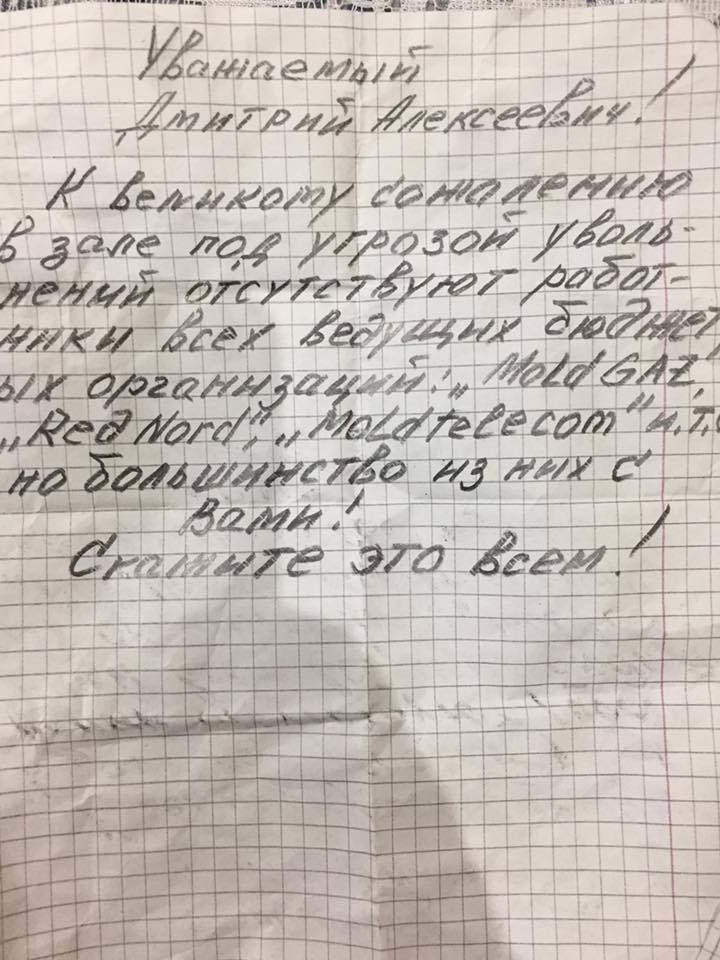 Уважаемый
Дмитрий Алексеевич!
К великому сожалению
в зале под угрозой уволь-
нений отсутствуют работ-
ники всех ведущих бюджет
ых организаций: „MoldGAZ,
„Red Nord", „Moldtelecom" и.т.
но большинство из них с
Вами!
Скажите это всем!